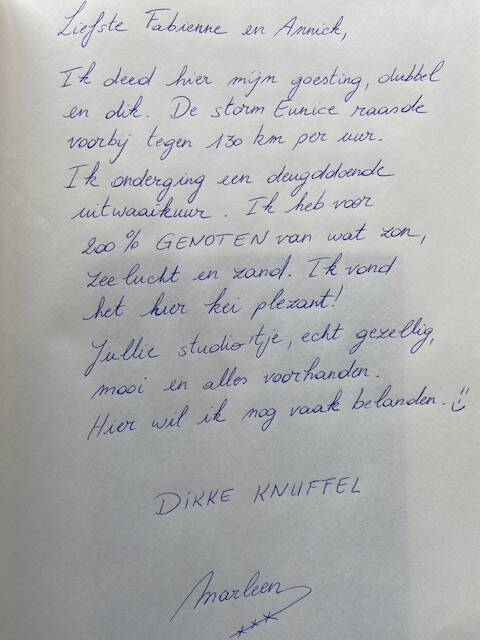 Liefste Fabienne en Annick,
Ik deed hier mijn goesting, dubbel
en dik. De storm Eunice raasde
voorbij tegen 130 km per uur.
Ik onderging een deugddoende
uitwaaikuur. Ik heb voor
200% GENOTEN van wat zon,
zeelucht en zand. Ik vond
het hier kei plezant!
Jullie studio'tje, echt gezellig,
mooi en alles voorhanden.
Hier wil ik nog vaak belanden.
DIKKE KNUFFEL
Marleen
***